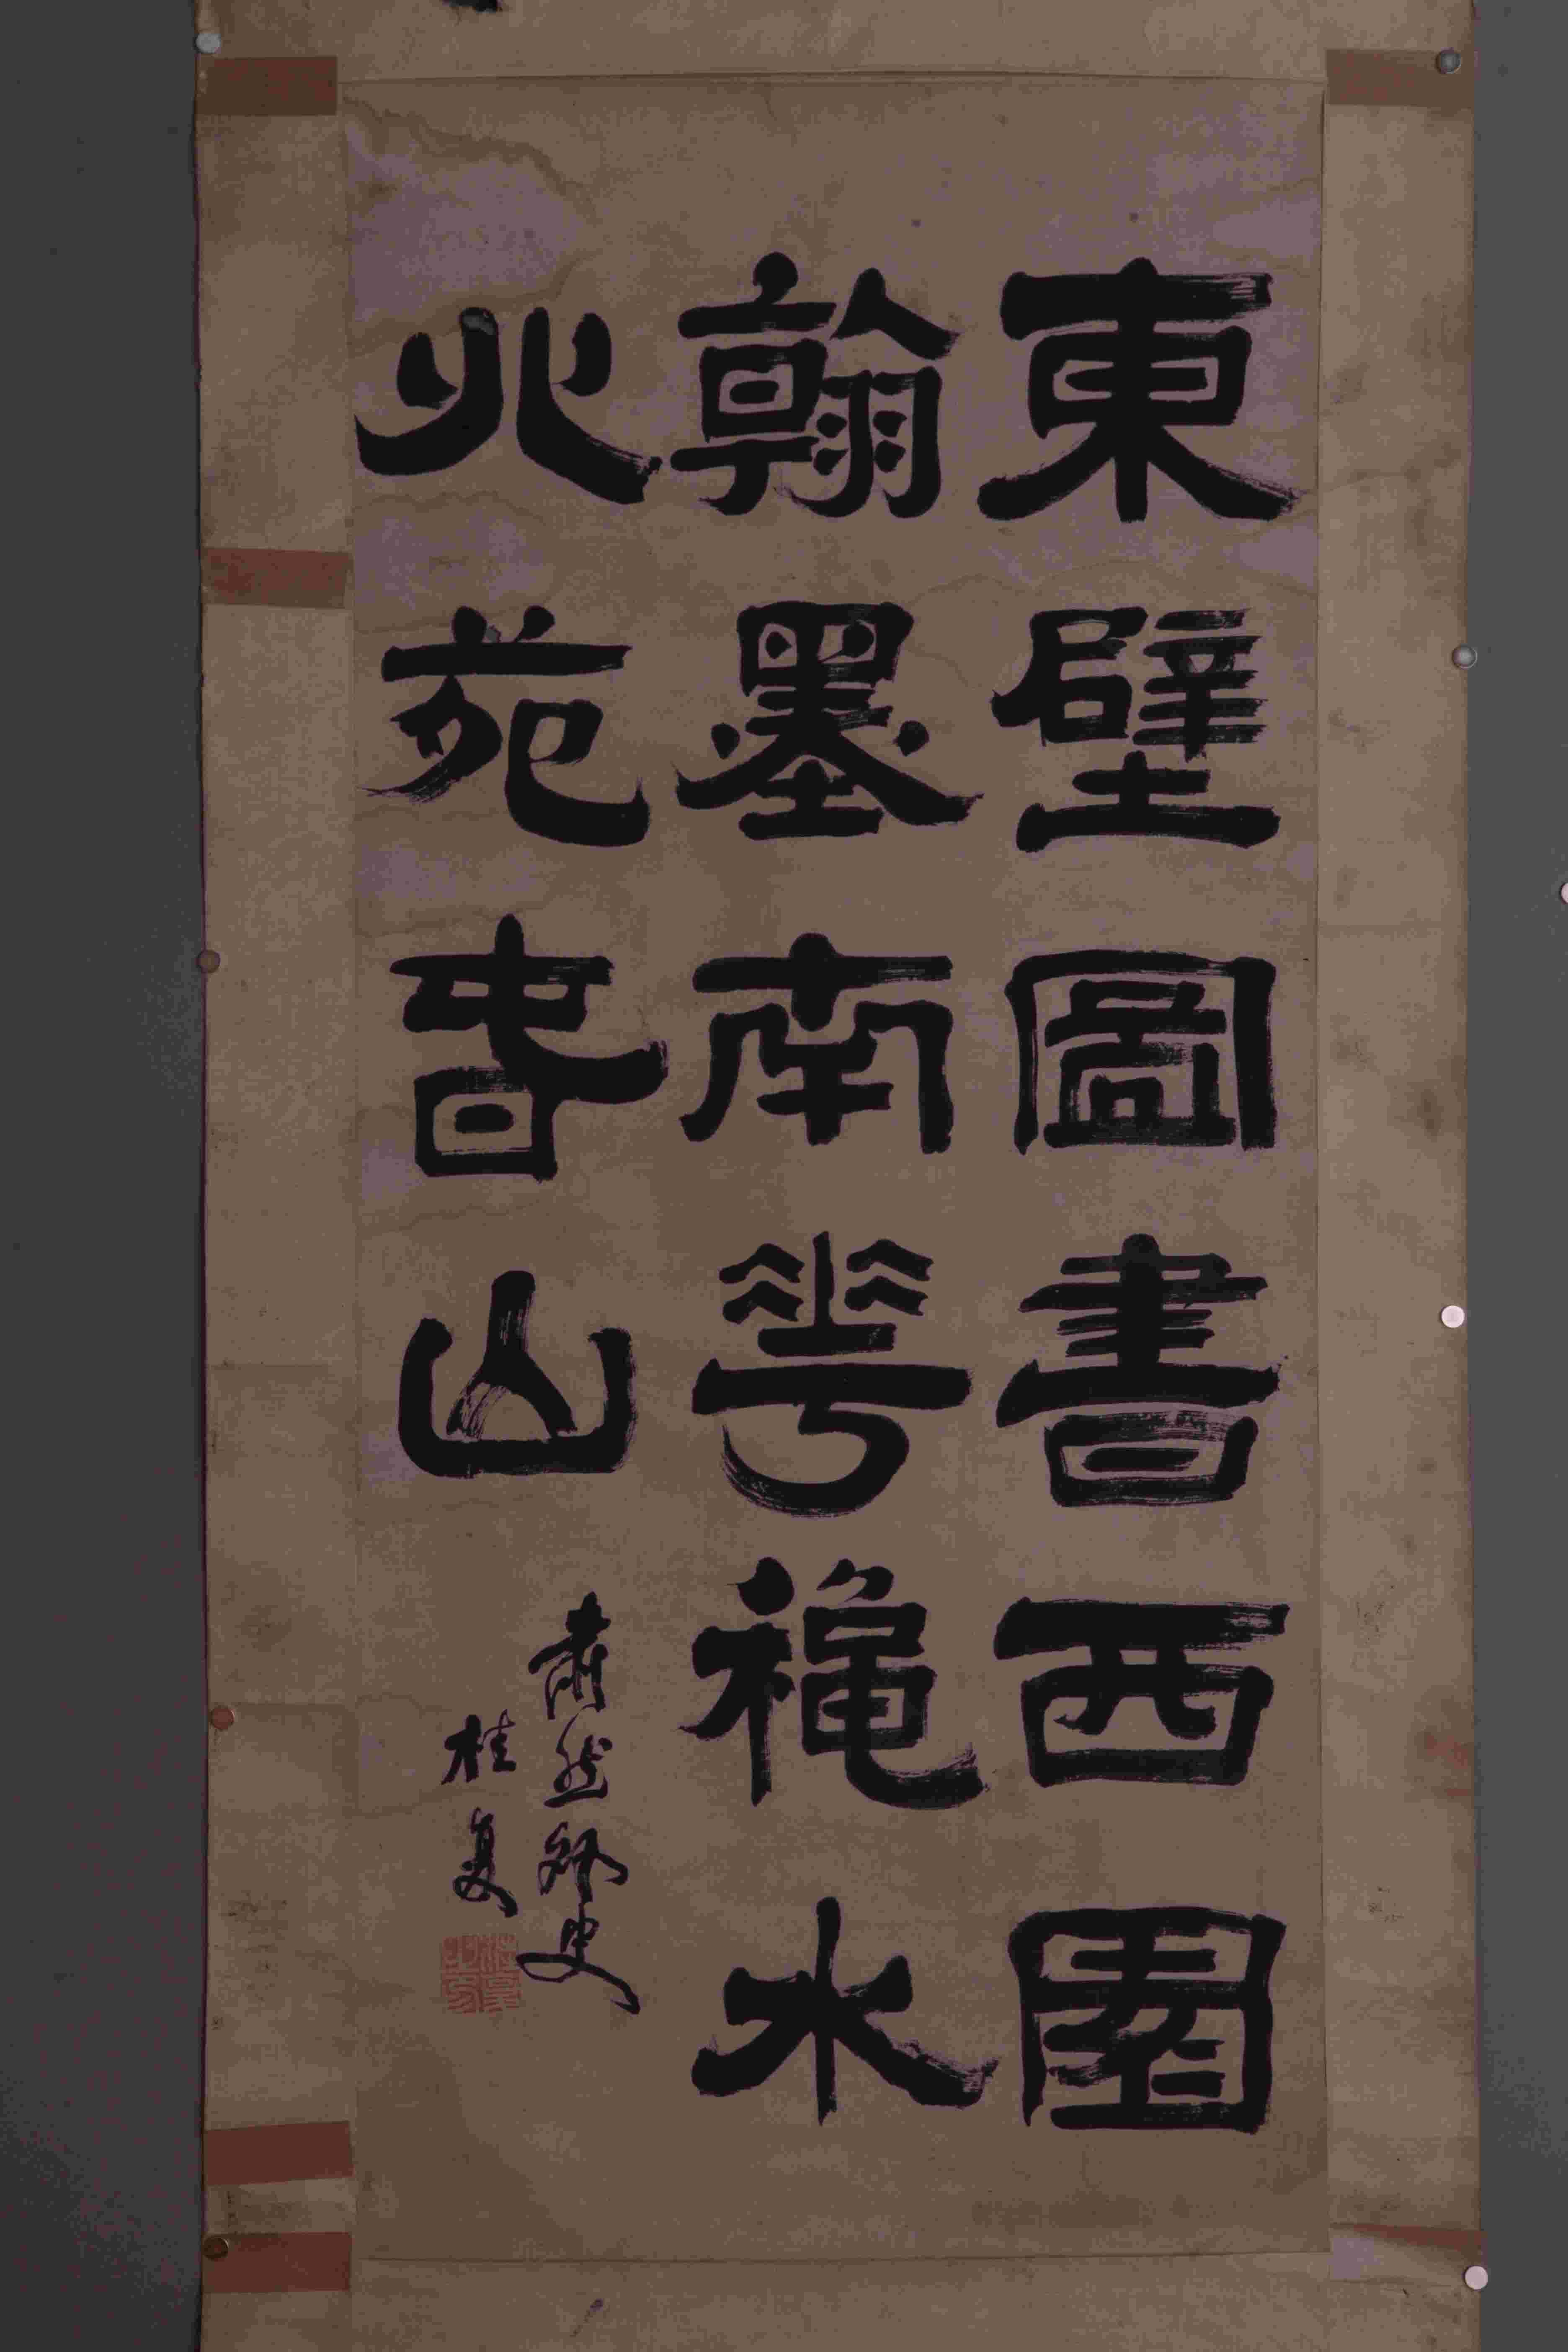 東壁圖書西園
翰墨南華龝水
北苑旾山
肅然外史
桂馥